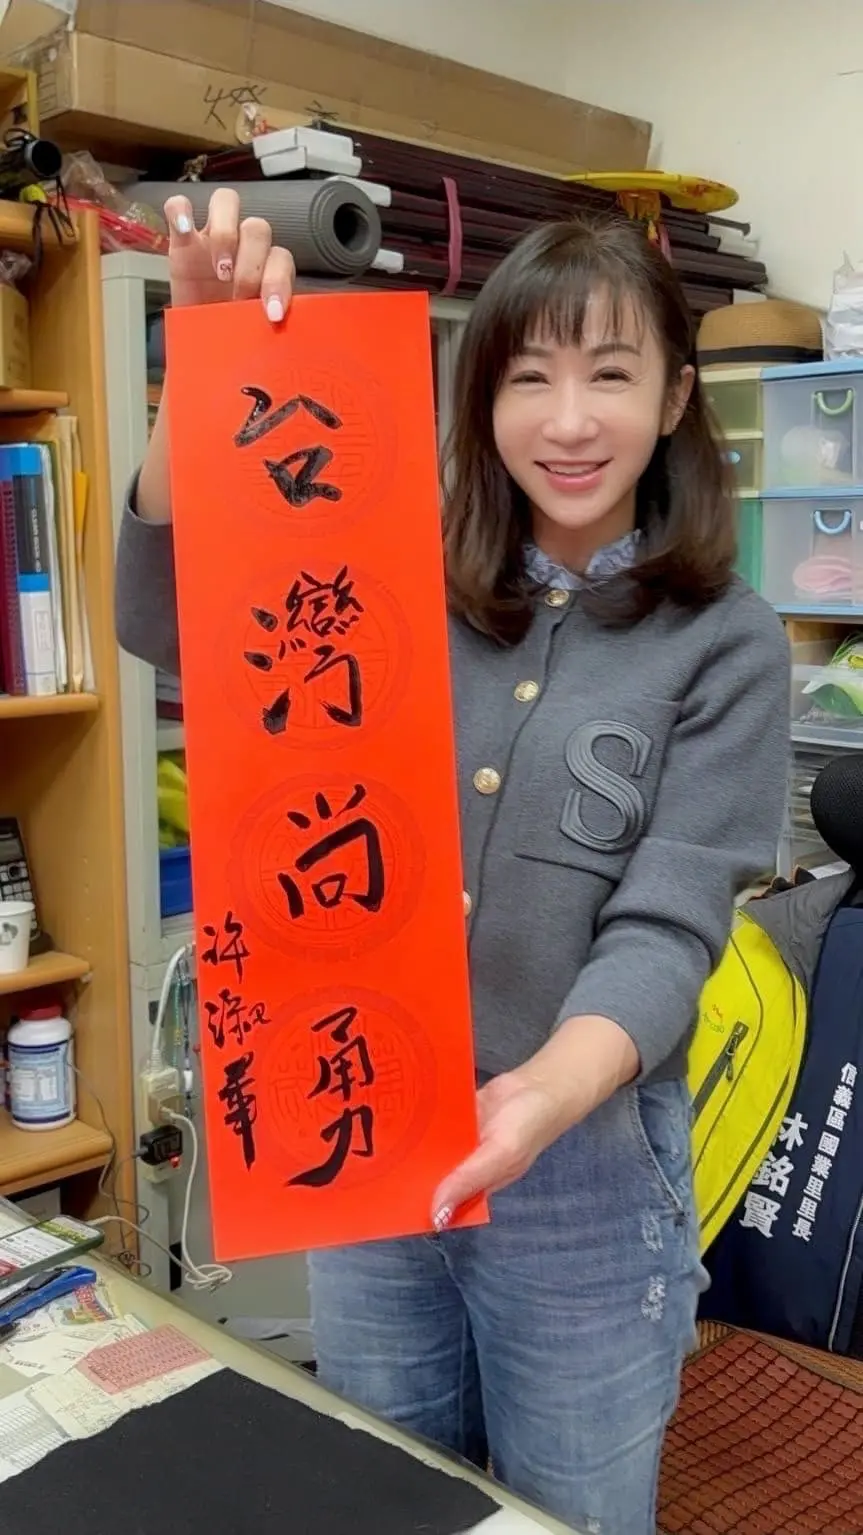 台灣尚勇
許淑華
S
信義區 國業里里長
林銘賢